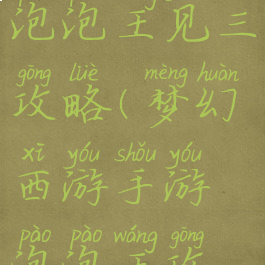 泡泡王见三
gōng lüè mèng huàn
攻略(梦幻
xī yóu shǒu yóu
西游手游
pào pào wáng gōng
泡泡王攻